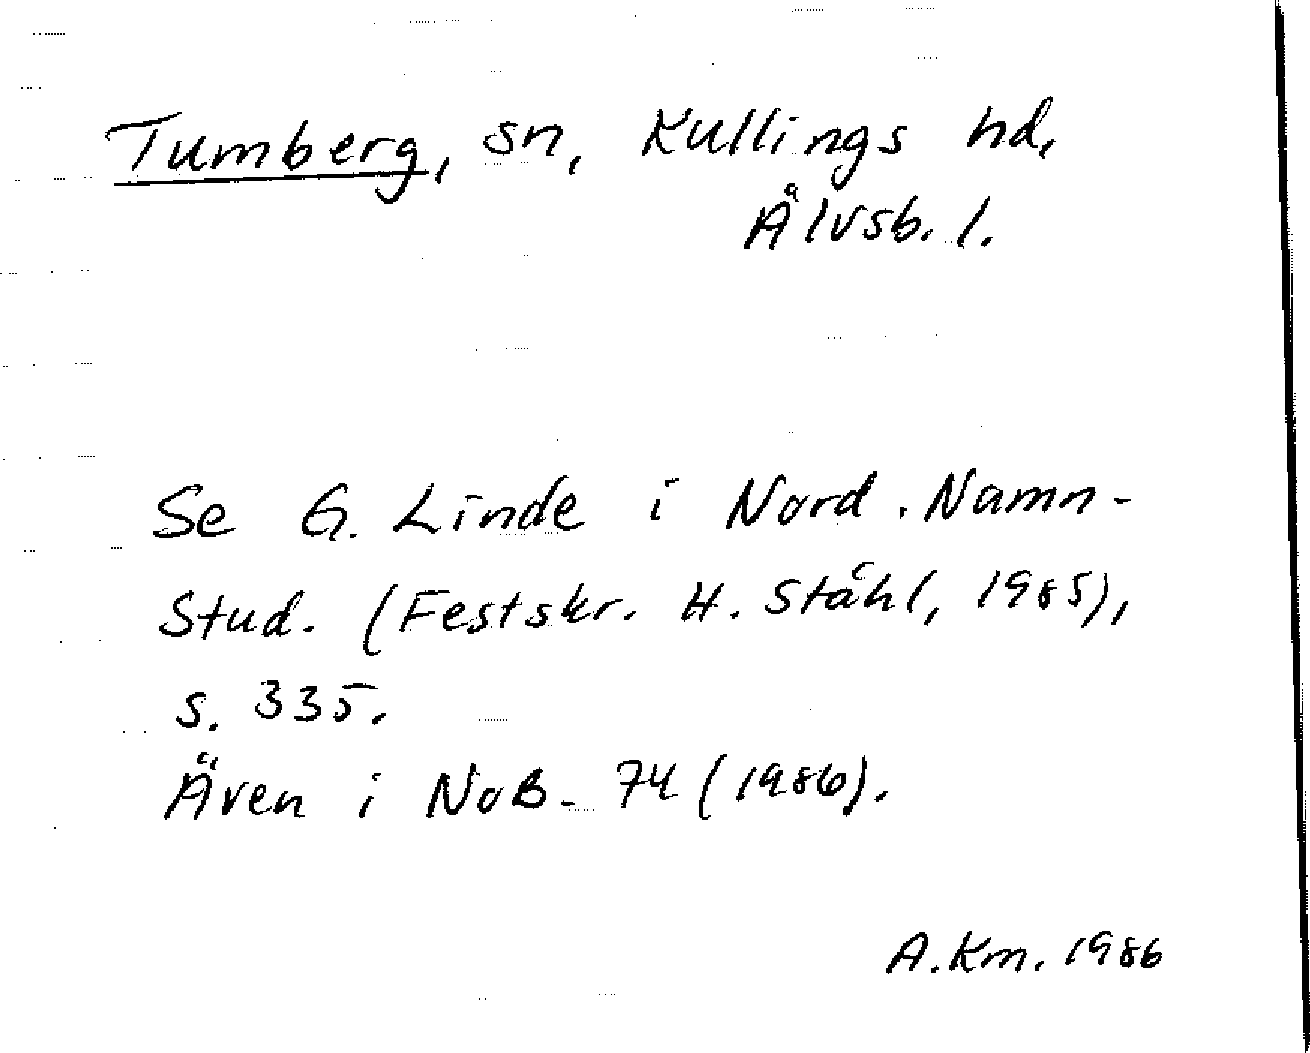 Tumberg, sn, Kullings hd,
Älvsb. l.
Se G. Linde i Nord. Namn-
Stud. (Festskr. H. Ståhl, 1985),
s. 335.
Även i NoB. 74 (1986).
A.Km. 1986